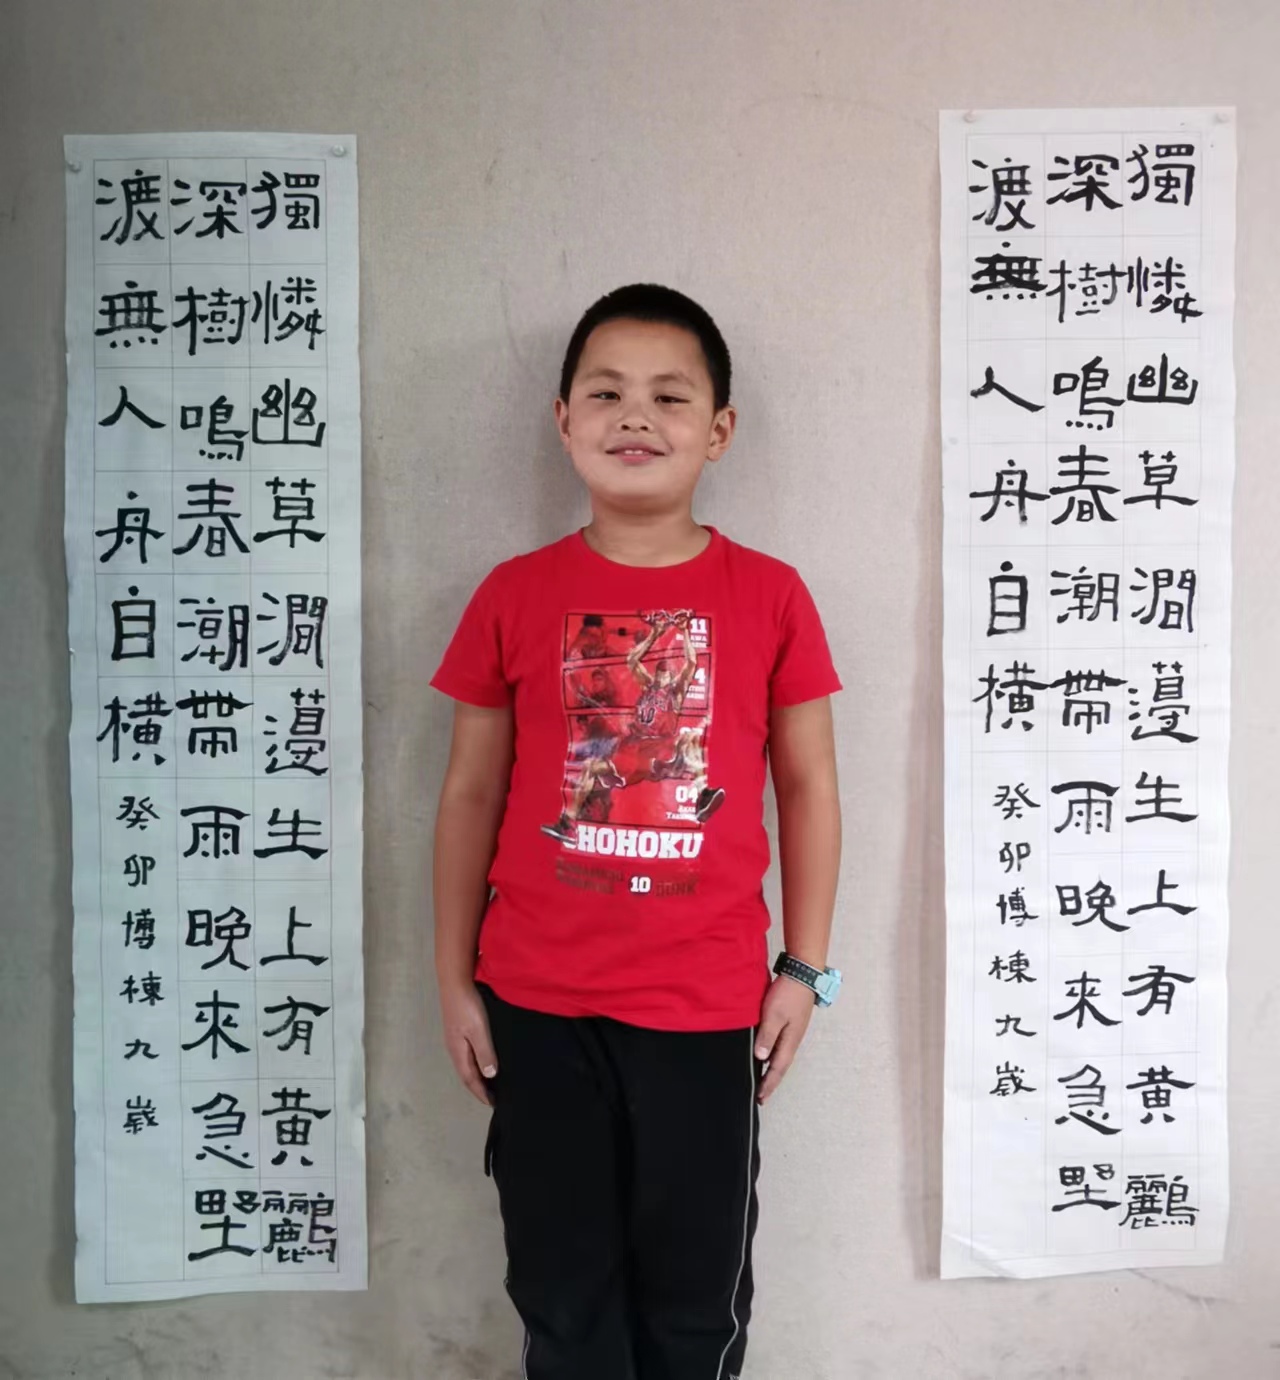 獨憐幽草澗邊生上有黃鸝
深樹鳴春潮帶雨晚來急野
渡無人舟自橫
癸卯博棟九歲
11
04
SHOHOKU
10
獨憐幽草澗邊生上有黃鸝
深樹鳴春潮帶雨晚來急野
渡無人舟自橫
癸卯博棟九歲